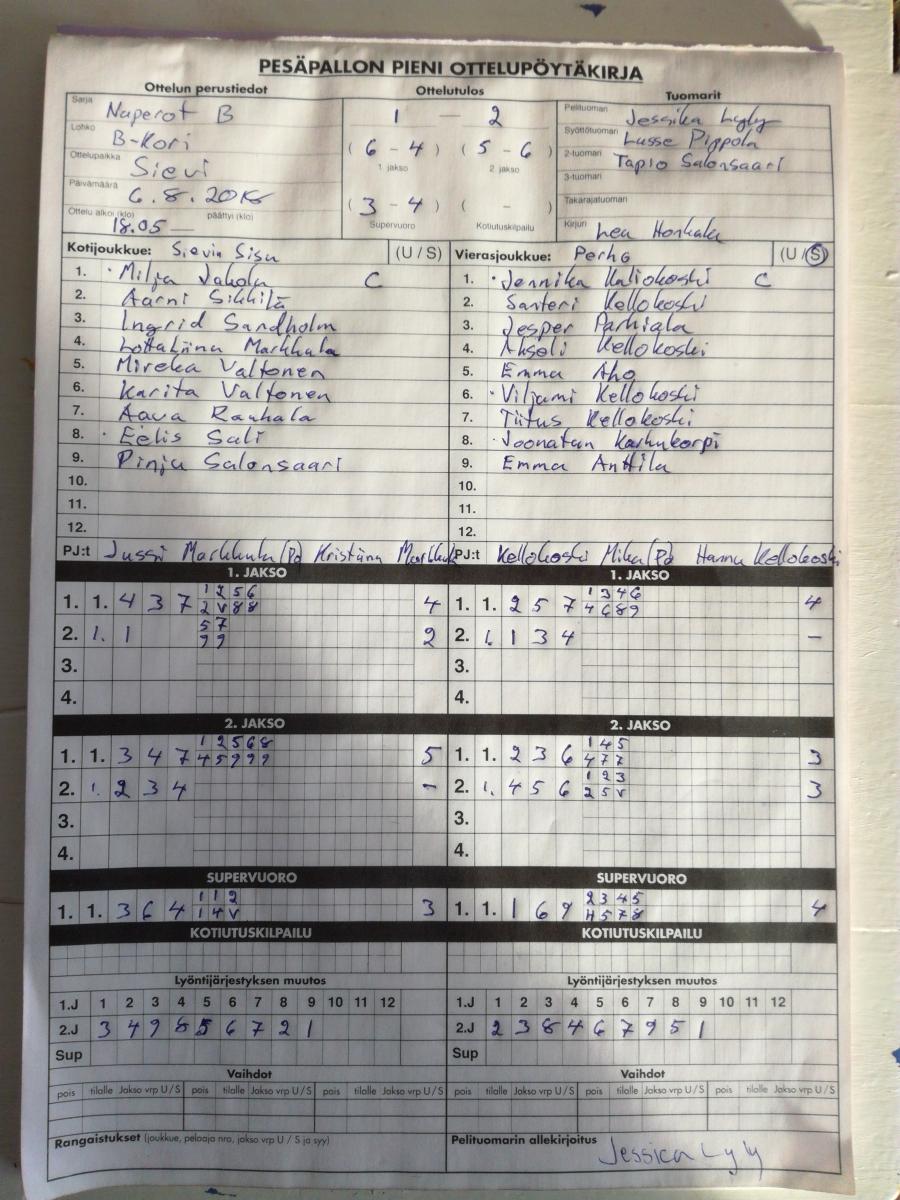 PESÄPALLON PIENI OTTELUPÖYTÄKIRJA
Ottelun perustiedot Ottelutulos Tuomarit
Sarja Naperot B 1 — 2 Pelituomari Jessika Lyly
Lohko B-Kori Syöttötuomari Lasse Pippola
Ottelupaikka Sievi ( 6 - 4 ) ( 5 - 6 ) 2-tuomari Tapio Salonsaari
1 jakso 2 jakso 3-tuomari
Päivämäärä 6.8.20 ( 3 - 4 ) ( - ) Takarajatuomari
Ottelu alkoi (klo) 18.05 — päättyi (klo) Supervuoro Kotiutuskilpailu Kirjuri Lea Honkala
Kotijoukkue: Sievin Sisu (U / S) Vierasjoukkue: Perho (U / S)
1. Milja Jahola C 1. Jennika Kaliokoski C
2. Aarni Sikkilä 2. Santeri Kellokoski
3. Ingrid Sandholm 3. Jesper Parhiala
4. Lottaliina Markkula 4. Akseli Kellokoski
5. Mireka Valtonen 5. Emma Aho
6. Karita Valtonen 6. Viljami Kellokoski
7. Aava Rauhala 7. Tiitus Kellokoski
8. Eelis Sali 8. Joonatan Karhukorpi
9. Pinja Salonsaari 9. Emma Anttila
10. 10.
11. 11.
12. 12.
PJ:t Jussi Markkula (Pj) Kristiina Markkula PJ:t Kellokoski Mika (Pj) Hannu Kellokoski
1. JAKSO 1. JAKSO
1 2 5 6 1 3 4 6
1. 1. 4 3 7 2 V 8 8 4 1. 1. 2 5 7 4 6 8 9 4
5 7
2. 1. 1 9 9 2 2. 1. 1 3 4 –
3. 3.
4. 4.
2. JAKSO 2. JAKSO
1 2 5 6 8 1 4 5
1. 1. 3 4 7 4 5 9 9 9 5 1. 1. 2 3 6 4 7 7 3
1 2 3
2. 1. 2 3 4 – 2. 1. 4 5 6 2 5 V 3
3. 3.
4. 4.
SUPERVUORO SUPERVUORO
1 1 2 2 3 4 5
1. 1. 3 6 4 1 4 V 3 1. 1. 1 6 9 4 5 7 8 4
KOTIUTUSKILPAILU KOTIUTUSKILPAILU
Lyöntijärjestyksen muutos Lyöntijärjestyksen muutos
1.J 1 2 3 4 5 6 7 8 9 10 11 12 1.J 1 2 3 4 5 6 7 8 9 10 11 12
2.J 3 4 9 8 5 6 7 2 1 2.J 2 3 8 4 6 7 9 5 1
Sup Sup
Vaihdot Vaihdot
pois tilalle Jakso vrp U / S pois tilalle Jakso vrp U / S pois tilalle Jakso vrp U / S pois tilalle Jakso vrp U / S pois tilalle Jakso vrp U / S pois tilalle Jakso vrp U / S
Rangaistukset (joukkue, pelaaja nro, jakso vrp U / S ja syy) Pelituomarin allekirjoitus
Jessica Lyly